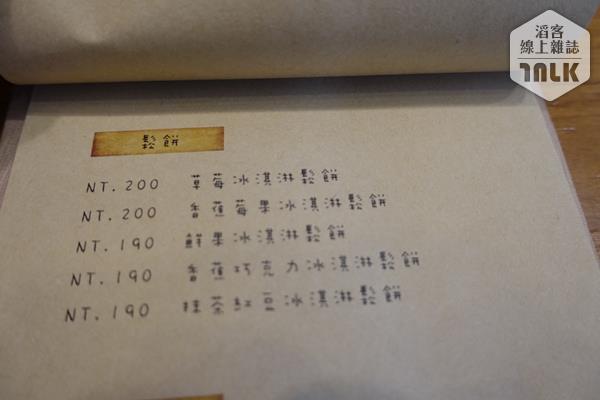 滔客
線上雜誌
TALK
鬆餅
NT. 200 草莓冰淇淋鬆餅
NT. 200 香蕉莓果冰淇淋鬆餅
NT. 190 鮮果冰淇淋鬆餅
NT. 190 香蕉巧克力冰淇淋鬆餅
NT. 190 抹茶紅豆冰淇淋鬆餅